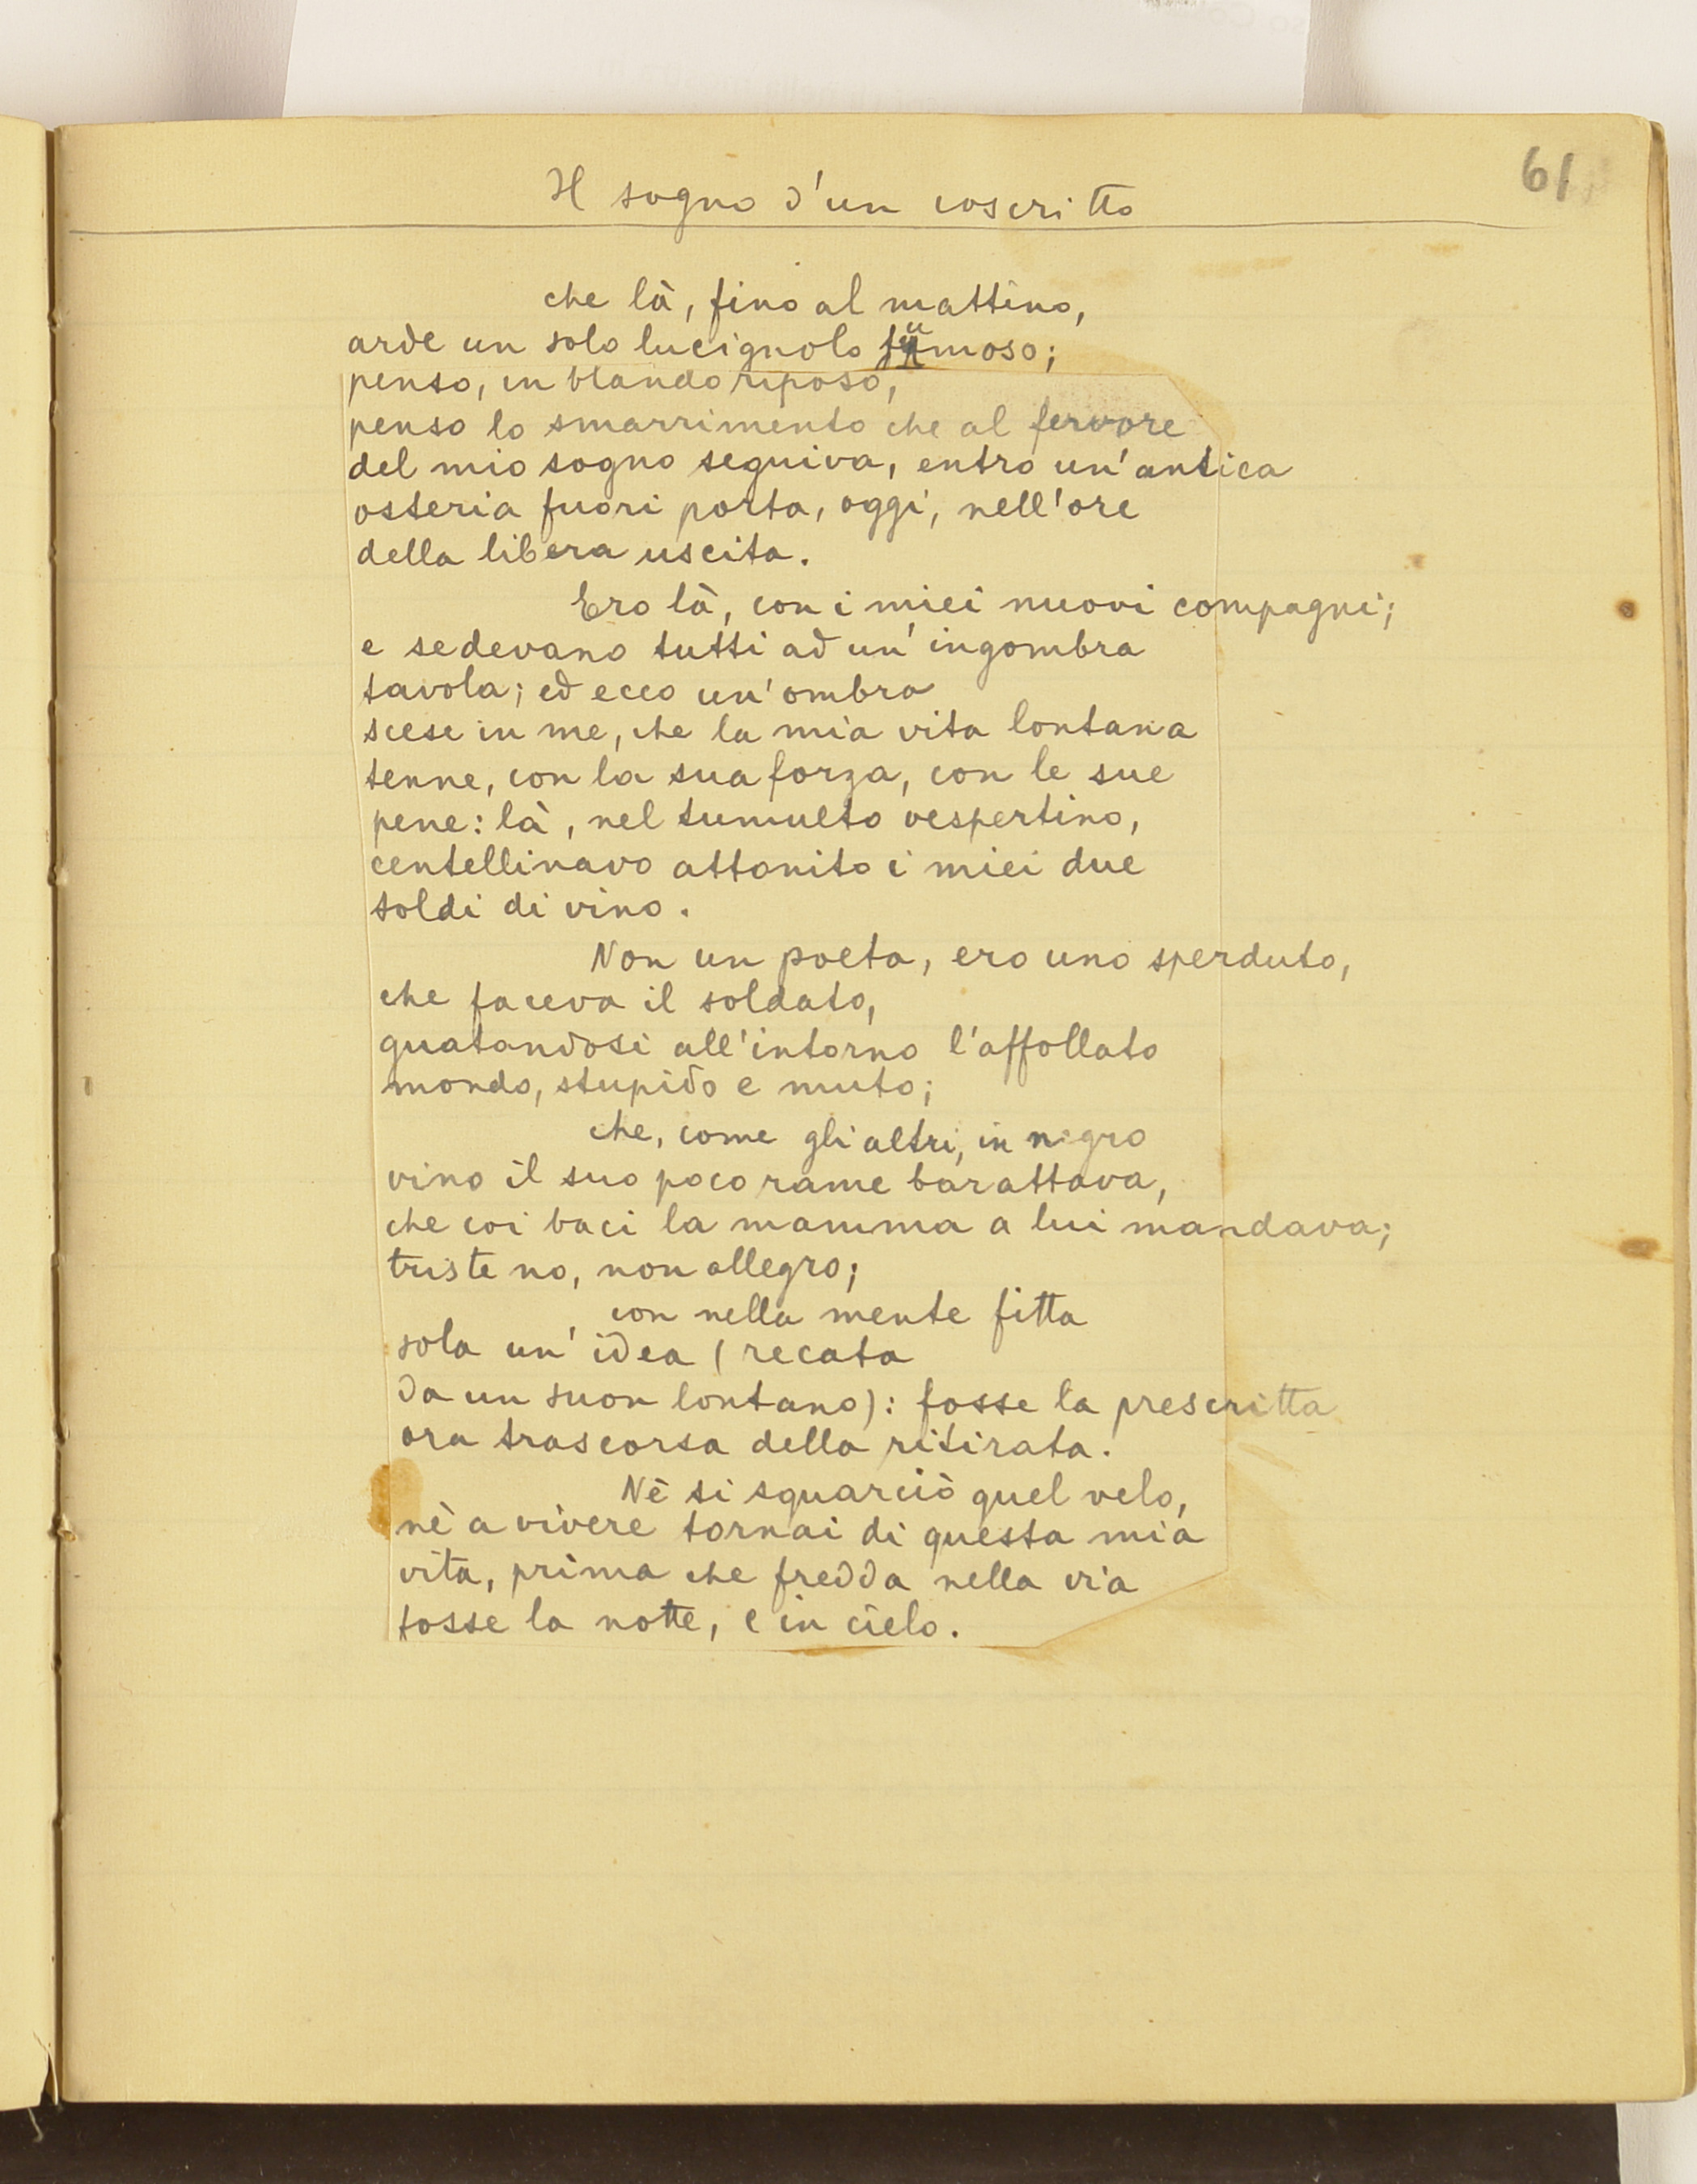 61
Il sogno d'un coscritto
che là, fino al mattino,
arde un solo lucignolo fumoso;
penso, in blando riposo,
penso lo smarrimento che al fervore
del mio sogno seguiva, entro un'antica
osteria fuori porta, oggi, nell'ore
della libera uscita.
Ero là, con i miei nuovi compagni;
e sedevano tutti ad un'ingombra
tavola; ed ecco un'ombra
scese in me, che la mia vita lontana
tenne, con la sua forza, con le sue
pene: là, nel tumulto vespertino,
centellinavo attonito i miei due
soldi di vino.
Non un poeta, ero uno sperduto,
che faceva il soldato,
guatandosi all'intorno l'affollato
mondo, stupido e muto;
che, come gli altri, in negro
vino il suo poco rame barattava,
che coi baci la mamma a lui mandava;
triste no, non allegro;
con nella mente fitta
sola un'idea (recata
da un suon lontano): fosse la prescritta
ora trascorsa della ritirata.
Nè si squarciò quel velo,
nè a vivere tornai di questa mia
vita, prima che fredda nella via
fosse la notte, e in cielo.